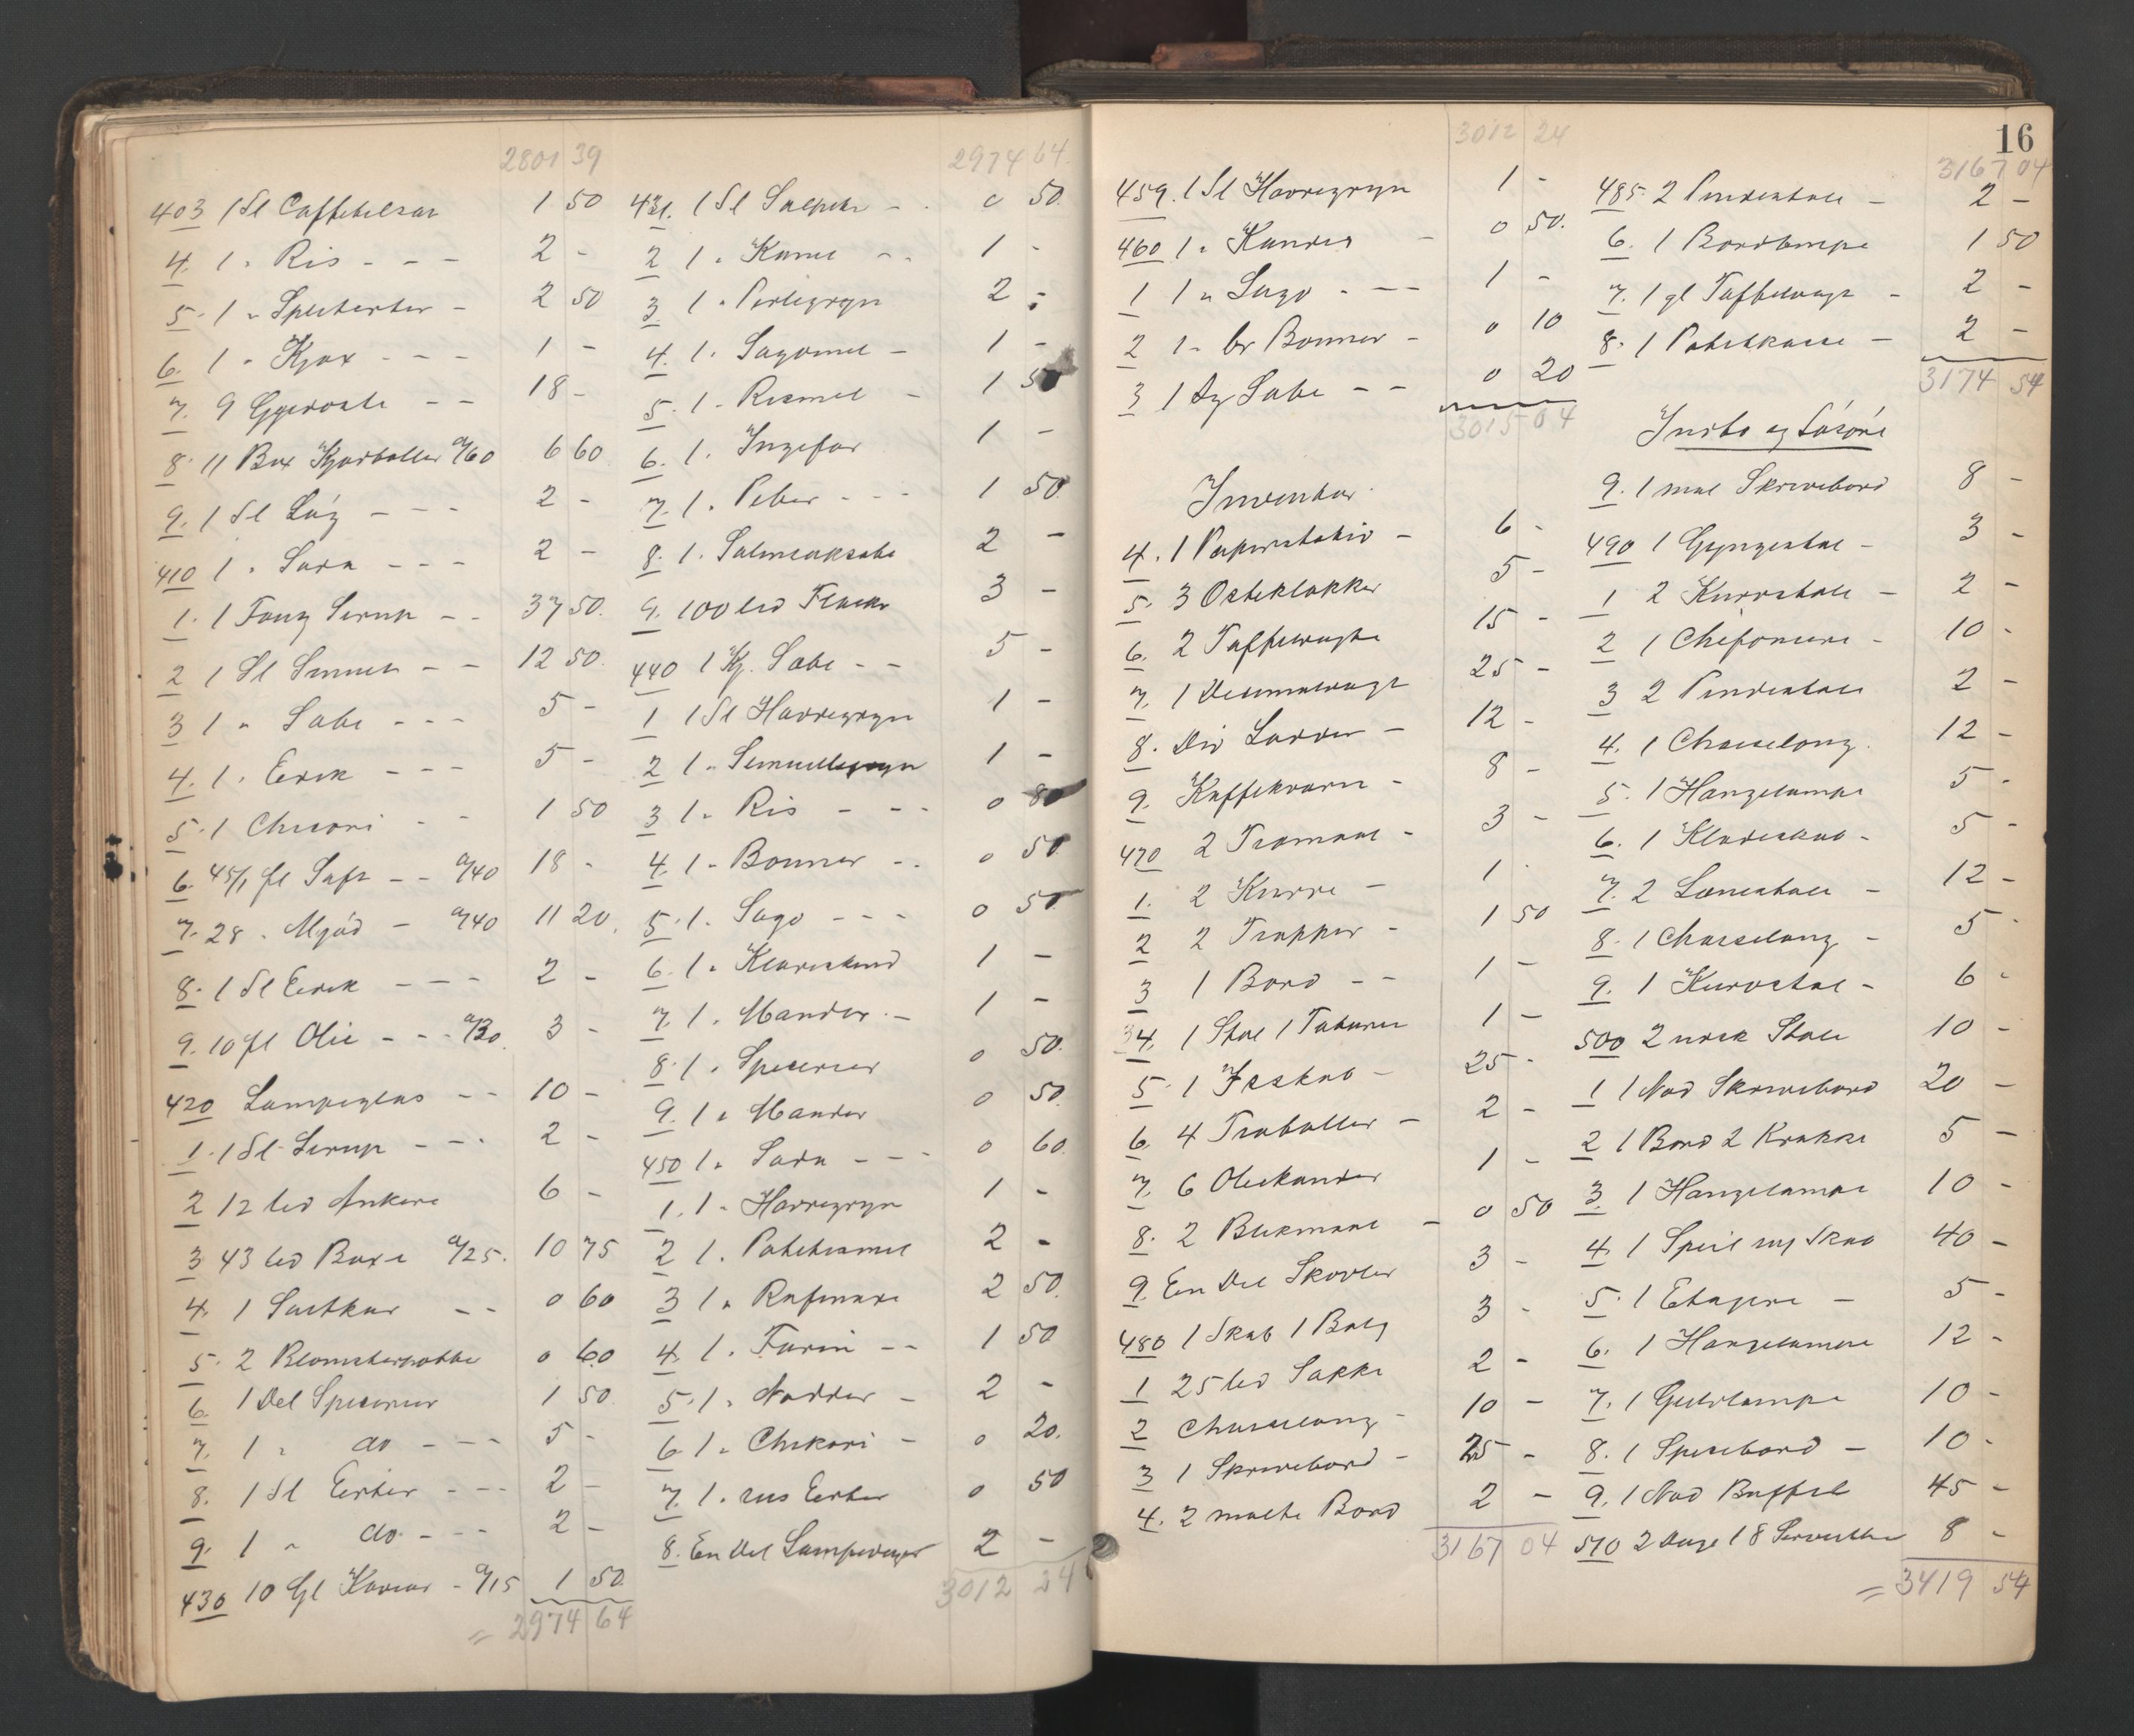 2801 39
403 1 Sl Caffebelzar 1 50
4. 1 " Ris - - - 2 -
5. 1 " - 2 50
6. 1 " Kjax - - - 1 -
7. 9 Gjedoste - - 18 -
8. 11 Bux Kjødboller a/60 6 60
9. 1 Sl Løg - - - 2 -
410 1 " Soda - - - 2 -
1. 1 Foug Sirup - - 37 50.
2 1 Sl Sennep - - 12 50.
3 1 " Sæbe - - - 5 -
4. 1 " Edik - - - 5 -
5. 1 Chicori - - 1 50
6. 45/1 fl Saft - - a/40 18 -
7. 28 " Mjød - a/40 11 20.
8. 1 Sl Edik - - - 2 -
9. 10 fl Olie - - - a/30. 3 -
420 Lampeglas - - 10 -
1. 1 Sl Sirup - - - 2 -
2 12 led Ankere 6 -
3 43 led Buxe a/25. 10 75
4. 1 Saltkar - - 0 60
5. 2 Blomsterpotte 0 60
6. 1 Del Specerier 1 50.
7. 1 " do - - - 5 -
8. 1 Sl Erter - - - 2 -
9. 1 " do. - - - 2 -
430 10 Gl Kaviar - a/15 1 50.
= 2974 64
2974 64.
431. 1 Sl Salpeter - - 0 50.
2 1 " Kanel - - 1 -
3 1 " Perlegryn 2 -
4. 1 " Sagomel - 1 -
5. 1 " Rismel - 1 50
6. 1 " Ingefær 1 -
7. 1 " Peber - - - 1 50.
8. 1 " Salmeaksæbe 2 -
9. 100 led Flasker 3 -
440 1 Kj. Sæbe - - 5 -
1 1 Sl Havregryn 1 -
2 1 " Semuellegryn 1 -
3 1 " Ris - - - 0 80
4. 1 " Bønner - - 0 50
5. 1 " Sago - - - 0 50
6. 1 " 1 -
7. 1 " Mandler - 1 -
8. 1 " Specerier 0 50.
9. 1 " Mandler 0 50.
450 1 " Soda - - - 0 60.
1. 1 " Havregryn 1 -
2 1 " Potetesmel 2 -
3 1 " Rafinade 2 50.
4. 1 " Farin - - 1 50
5. 1 " Nødder - 2 -
6. 1 " Chikori - 0 20.
7. 1 " rus Erter 0 50
8. En Del Lampeveger 2 -
3012 24
3012 24
459. 1 Sl Havregryn 1 -
460 1 " Kandis - 0 50.
1 1 " Sago - - - 1 -
2 1 " br Bønner - 0 10
3 1 Sæbe - - 0 20
3015 04
Inventar.
4. 1 Papirstativ - 6 -
5. 3 Osteklokker 5 -
6. 2 Taffelvægte 15 -
7. 1 Decimalvægt 25 -
8. Div Lodder - 12 -
9. Kaffekværn - 8 -
470 2 Tramaal - 3 -
1. 2 Kurve - 1 -
2 2 Trapper - 1 50
3 1 Bord - - 1 -
4. 1 Stol 1 Taburet 1 -
5. 1 Isskab - 25 -
6. 4 Traballer - 2 -
7. 6 Oliekander 1 -
8. 2 Blikmaal - 0 50
9. En Del Skovler 3 -
480 1 Skab 1 Balg 3 -
1 25 led Sække 2 -
2 Chaiselong - 10 -
3 1 Skrivebord - 25 -
4. 2 malte Bord 2 -
3167 04
16
3167 04
485. 2 Pindestole - 2 -
6. 1 Bordlampe 1 50
7. 1 gl Taffelvægt - 2 -
8. 1 Potetkasse - 2 -
3174 54
Indbo og Løsøre
9. 1 mal Skrivebord 8 -
490 1 Gyngestol - 3 -
1 2 Kurvstole - 2 -
2 1 Chefoniere - 10 -
3 2 Pindestole 2 -
4. 1 Chaiselong. 12 -
5. 1 Hangelampe 5 -
6. 1 Klædeskab - 5 -
7. 2 Lænestole - 12 -
8. 1 Chaiselong - 5 -
9. 1 Kurvstol - 6 -
500 2 Stole 10 -
1 1 Nød Skrivebord 20 -
2 1 Bord 2 Krakke 5 -
3. 1 Hangelampe 10 -
4. 1 Speil m/ Skab 40 -
5. 1 Etagere - 5 -
6. 1 Hangelampe 12 -
7. 1 Gulvlampe 10 -
8. 1 Spisebord - 10 -
9. 1 Nød Buffet 45 -
510 2 Duge 18 Servietter 8 -
= 3419 54